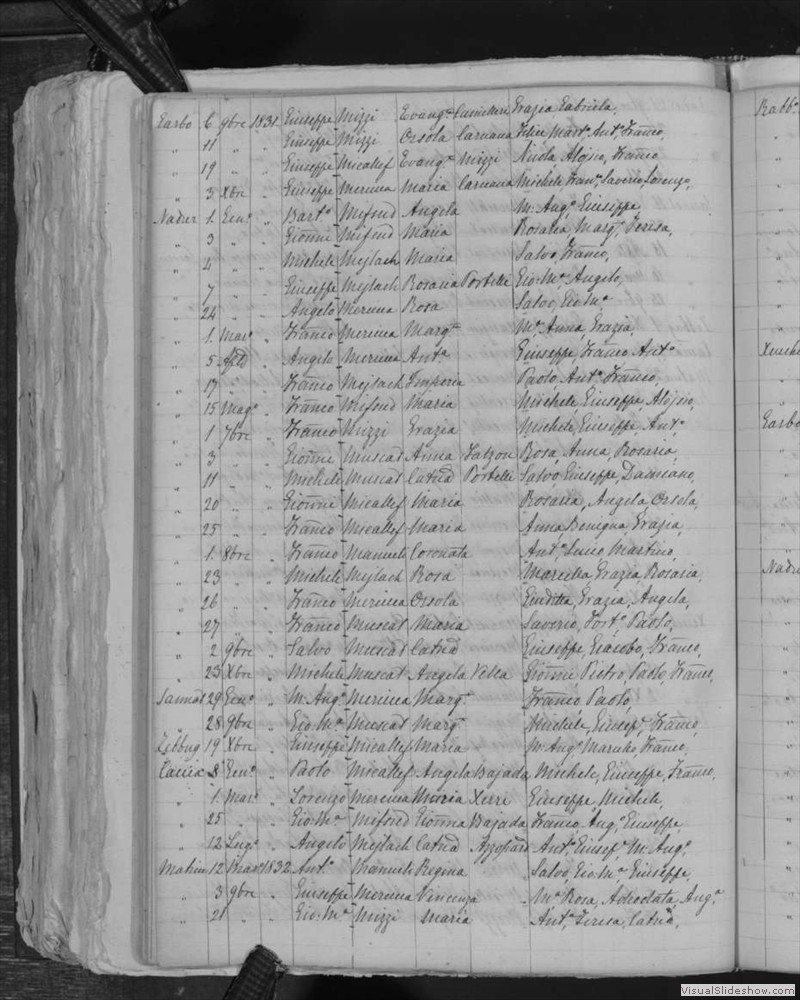 Garbo 6 9bre 1831 Giuseppe Mizzi Evang.a Camilleri Grazia Gabriela,
„ 11 „ „ Giuseppe Mizzi Orsola Caruana Felice Mart.o Ant.o Franco,
„ 19 „ „ Giuseppe Micallef Evang.a Mizzi Nicola Aloisio, Franco
„ 3 Xbre „ Giuseppe Mercieca Maria Caruana Michele, Fran.o Saverio, Lorenzo,
Nadur 1 Gen.o „ Bart.o Mifsud Angela M. Ang.o Giuseppe
„ 3 „ „ Gionni Mifsud Maria Rosaria, Marg.a Teresa,
„ 4 „ „ Michele Mejlach Maria Salvo, Franco,
„ 7 „ „ Giuseppe Mejlach Rosaria Portelli Gio: M.a Angelo,
„ 24 „ „ Angelo Mercieca Rosa Salvo, Gio: M.a
„ 1 Mar.o „ Franco Mercieca Marg.a M.a Anna, Grazia,
„ 5 Aple „ Angelo Mercieca Ant.a Giuseppe, Franco, Ant.o
„ 17 „ „ Franco Mejlach Imperia Paolo, Ant.o Franco,
„ 15 Mag.o „ Franco Mifsud Maria Michele, Giuseppe, Aloisio,
„ 1 7bre „ Franco Mizzi Grazia Michele, Giuseppe, Ant.o
„ 3 „ „ Gionni Muscat Anna Falzon Rosa, Anna, Rosaria,
„ 11 „ „ Michele Muscat Catna Portelli Salvo, Giuseppe, Damiano,
„ 20 „ „ Gionni Micallef Maria Rosaria, Angela, Orsola,
„ 25 „ „ Franco Micallef Maria Anna Benigna, Grazia,
„ 1 8bre „ Franco Manueli Coronata Ant.o Lucio Martino,
„ 23 „ „ Michele Mejlach Rosa Marcella, Grazia, Rosaria,
„ 26 „ „ Franco Mercieca Orsola Giuditta, Grazia, Angela,
„ 27 „ „ Franco Muscat Maria Saverio, Fort.o Paolo,
„ 2 9bre „ Salvo Muscat Catna Giuseppe, Giacobo, Franco,
„ 23 Xbre „ Michele Muscat Angela Vella Gionni Pietro, Paolo, Franco,
Sannat 29 Gen.o „ M. Ang.o Mercieca Marg.a Franco Paolo,
„ 28 9bre „ Gio: M.a Muscat Marg.a Michele, Giusep.e, Franco,
Zebbug 19 Xbre „ Giuseppe Micallef Maria M. Ang.o Franco,
8 Gen.o „ Paolo Micallef Angela Bajada Michele, Giuseppe, Franco,
„ 1 Mar.o „ Lorenzo Mercieca Maria Xerri Giuseppe, Michele,
„ 25 „ „ Gio: M.a Mifsud Gionna Bajada Franco, Ang.o Giuseppe,
„ 12 Lug.o „ Angelo Mejlach Catna Azzopard Ant.o Giusep.e M. Ang.o
12 Mar.o 1832 Ant.o Manueli Regina Salvo, Gio: M.a Giuseppe,
„ 3 9bre „ Giuseppe Mercieca Vincenza M.a Rosa, Adeodata, Ang.a
„ 21 „ „ Gio: M.a Mizzi Maria Ant.a Teresa, Catna,
Rabb.o
Garbo
Nadur
VisualSlideshow.com